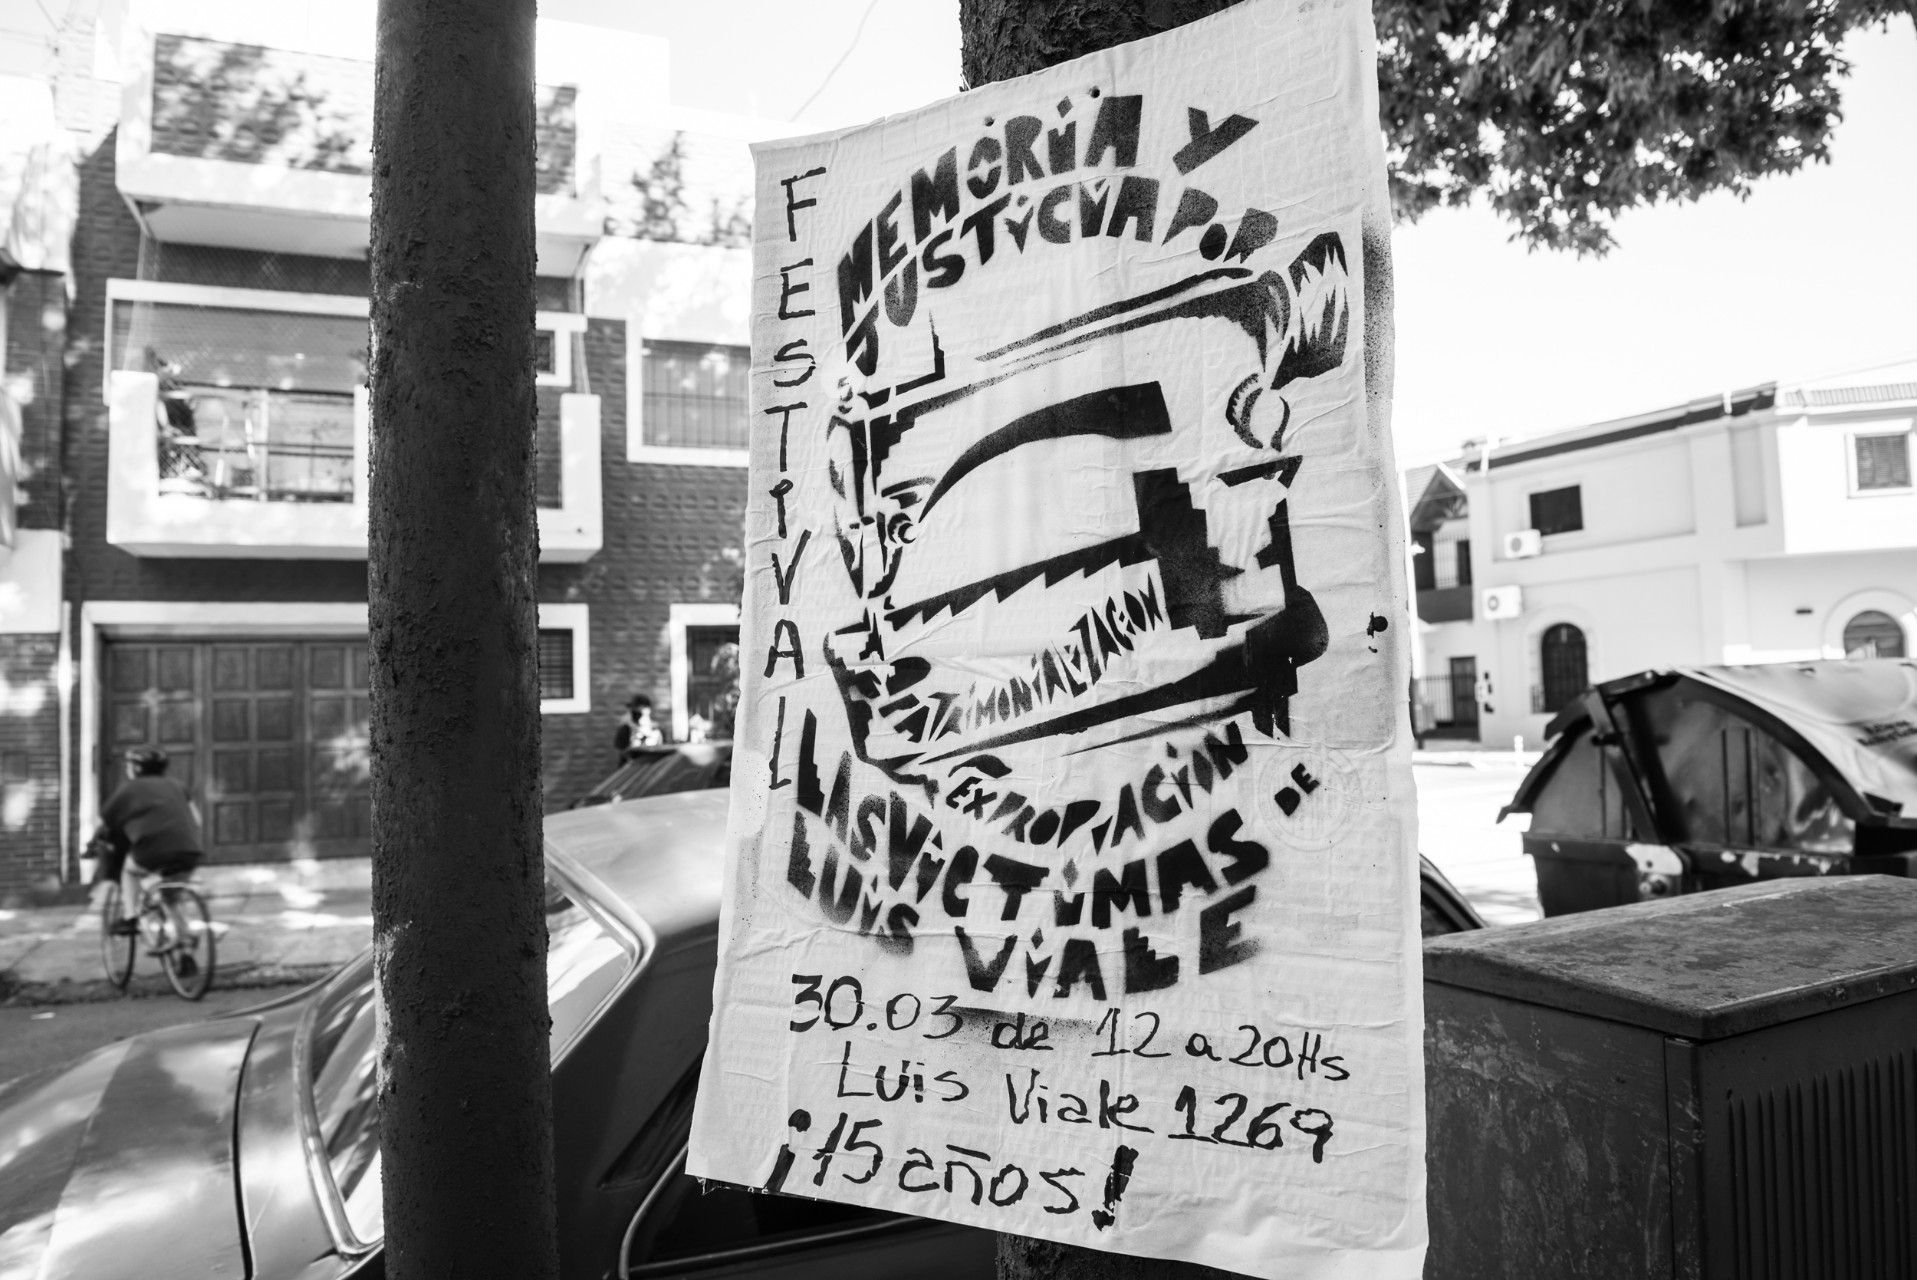 FESTIVAL
MEMORIA Y
JUSTICIA POR
PATRIMONIALIZACION
EXPROPIACION DE
LAS VICTIMAS
LUIS VIALE
30.03 de 12 a 20Hs
Luis Viale 1269
¡15 años!